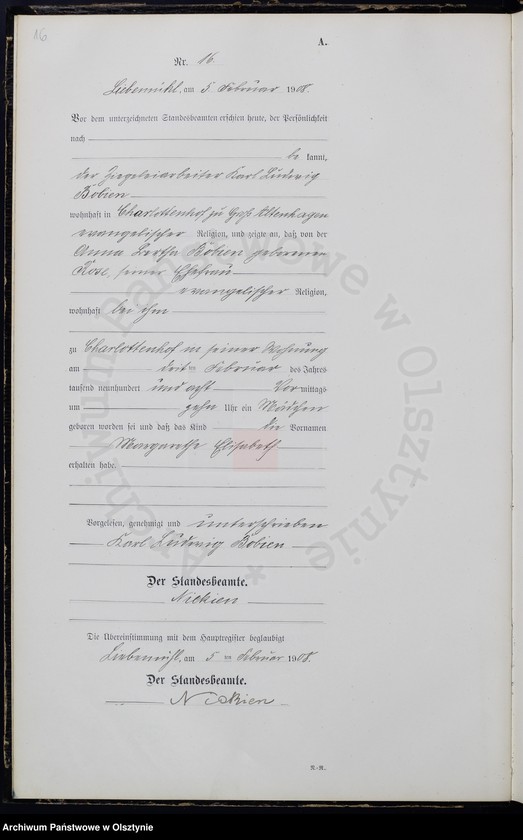 16
A.
Nr. 16.
Liebemühl, am 5 Februar 1908.
Vor dem unterzeichneten Standesbeamten erschien heute, der Persönlichkeit
nach
be kannt,
der Ziegeleiarbeiter Karl Ludwig
Bobien
wohnhaft in Charlottenhof zu Groß Altenhagen
evangelischer Religion, und zeigte an, daß von der
Anna Bertha Bobien geborenen
seiner Ehefrau
evangelischer Religion,
wohnhaft bei ihm
zu Charlottenhof in seiner Wohnung
am Februar des Jahres
tausend neunhundert und acht Vor mittags
um zehn Uhr ein Mädchen
geboren worden sei und daß das Kind die Vornamen
Margarethe Elisabeth
erhalten habe.
Vorgelesen, genehmigt und unterschrieben
Karl Ludwig Bobien
Der Standesbeamte.
Nickien
Die Übereinstimmung mit dem Hauptregister beglaubigt
Liebemühl, am 5 Februar 1908.
Der Standesbeamte.
Nickien
R.-R.
Archiwum Państwowe w Olsztynie
Archiwum Państwowe w Olsztynie